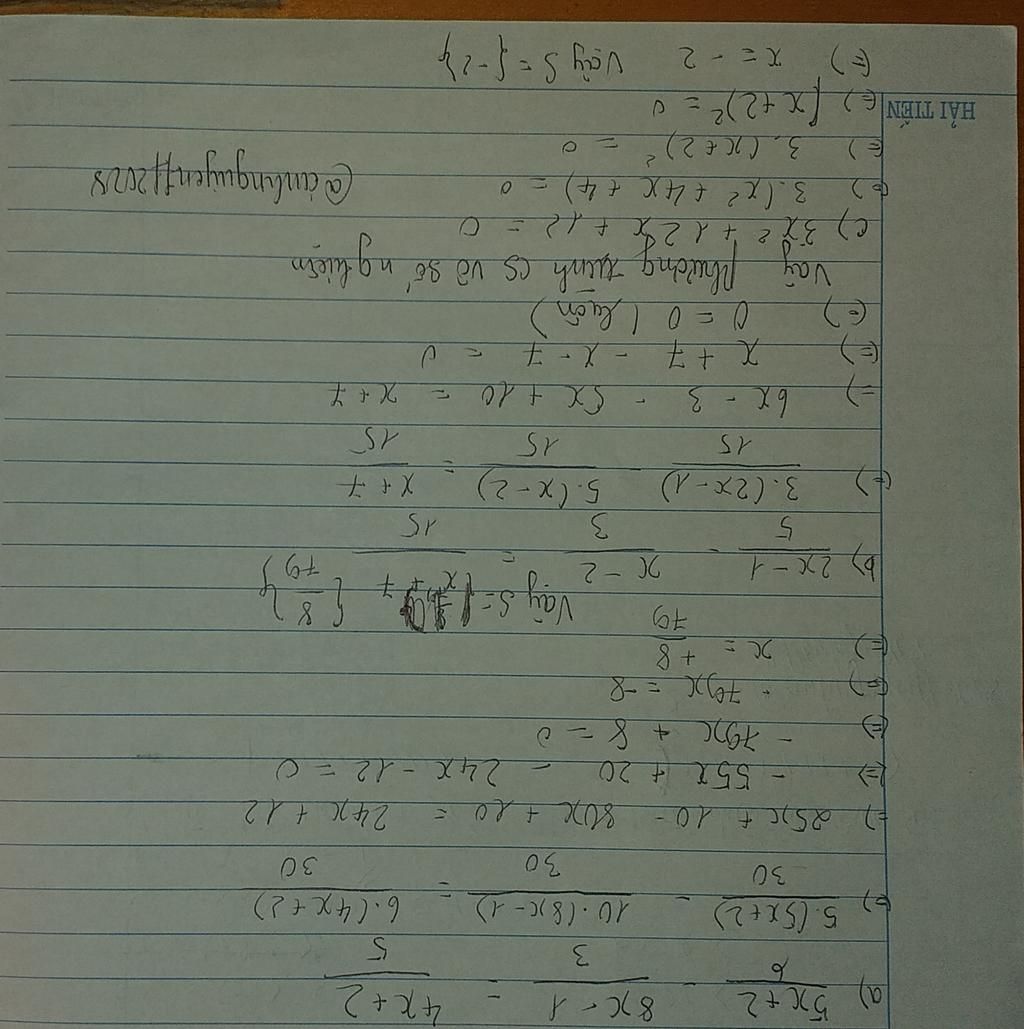 a) (5x+2)/6 - (8x-1)/3 = (4x+2)/5
(=) 5.(5x+2)/30 - 10.(8x-1)/30 = 6.(4x+2)/30
(=) 25x + 10 - 80x + 10 = 24x + 12
(=) - 55x + 20 - 24x - 12 = 0
(=) - 79x + 8 = 0
(=) - 79x = -8
(=) x = + 8/79
Vậy S = { 8/79 }
b) (2x-1)/5 - (x-2)/3 = (x+7)/15
(=) 3.(2x-1)/15 - 5.(x-2)/15 = (x+7)/15
(=) 6x - 3 - 5x + 10 = x+7
(=) x + 7 - x - 7 = 0
(=) 0 = 0 (luôn)
Vậy phương trình có vô số nghiệm
c) 3x² + 12x + 12 = 0
(=) 3.(x² + 4x + 4) = 0
(=) 3.(x+2)² = 0
(=) (x+2)² = 0
(=) x = -2 Vậy S = {-2}
HẢI TIẾN